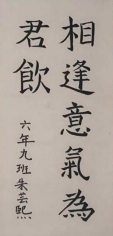 相逢意氣為
君飲
六年九班朱芸熙